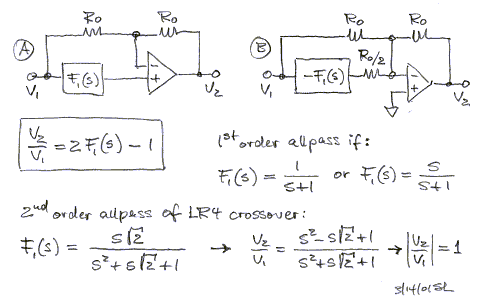 A
R₀
R₀
F₁(s)
−
+
V₁
V₂
B
R₀
R₀
−F₁(s)
R₀/2
−
+
V₁
V₂
V₂/V₁ = 2 F₁(s) − 1
1st order allpass if:
F₁(s) = 1/(s+1) or F₁(s) = s/(s+1)
2nd order allpass of LR4 crossover:
F₁(s) = s√2/(s²+s√2+1) → V₂/V₁ = (s²−s√2+1)/(s²+s√2+1) → |V₂/V₁| = 1
3/14/01 SL